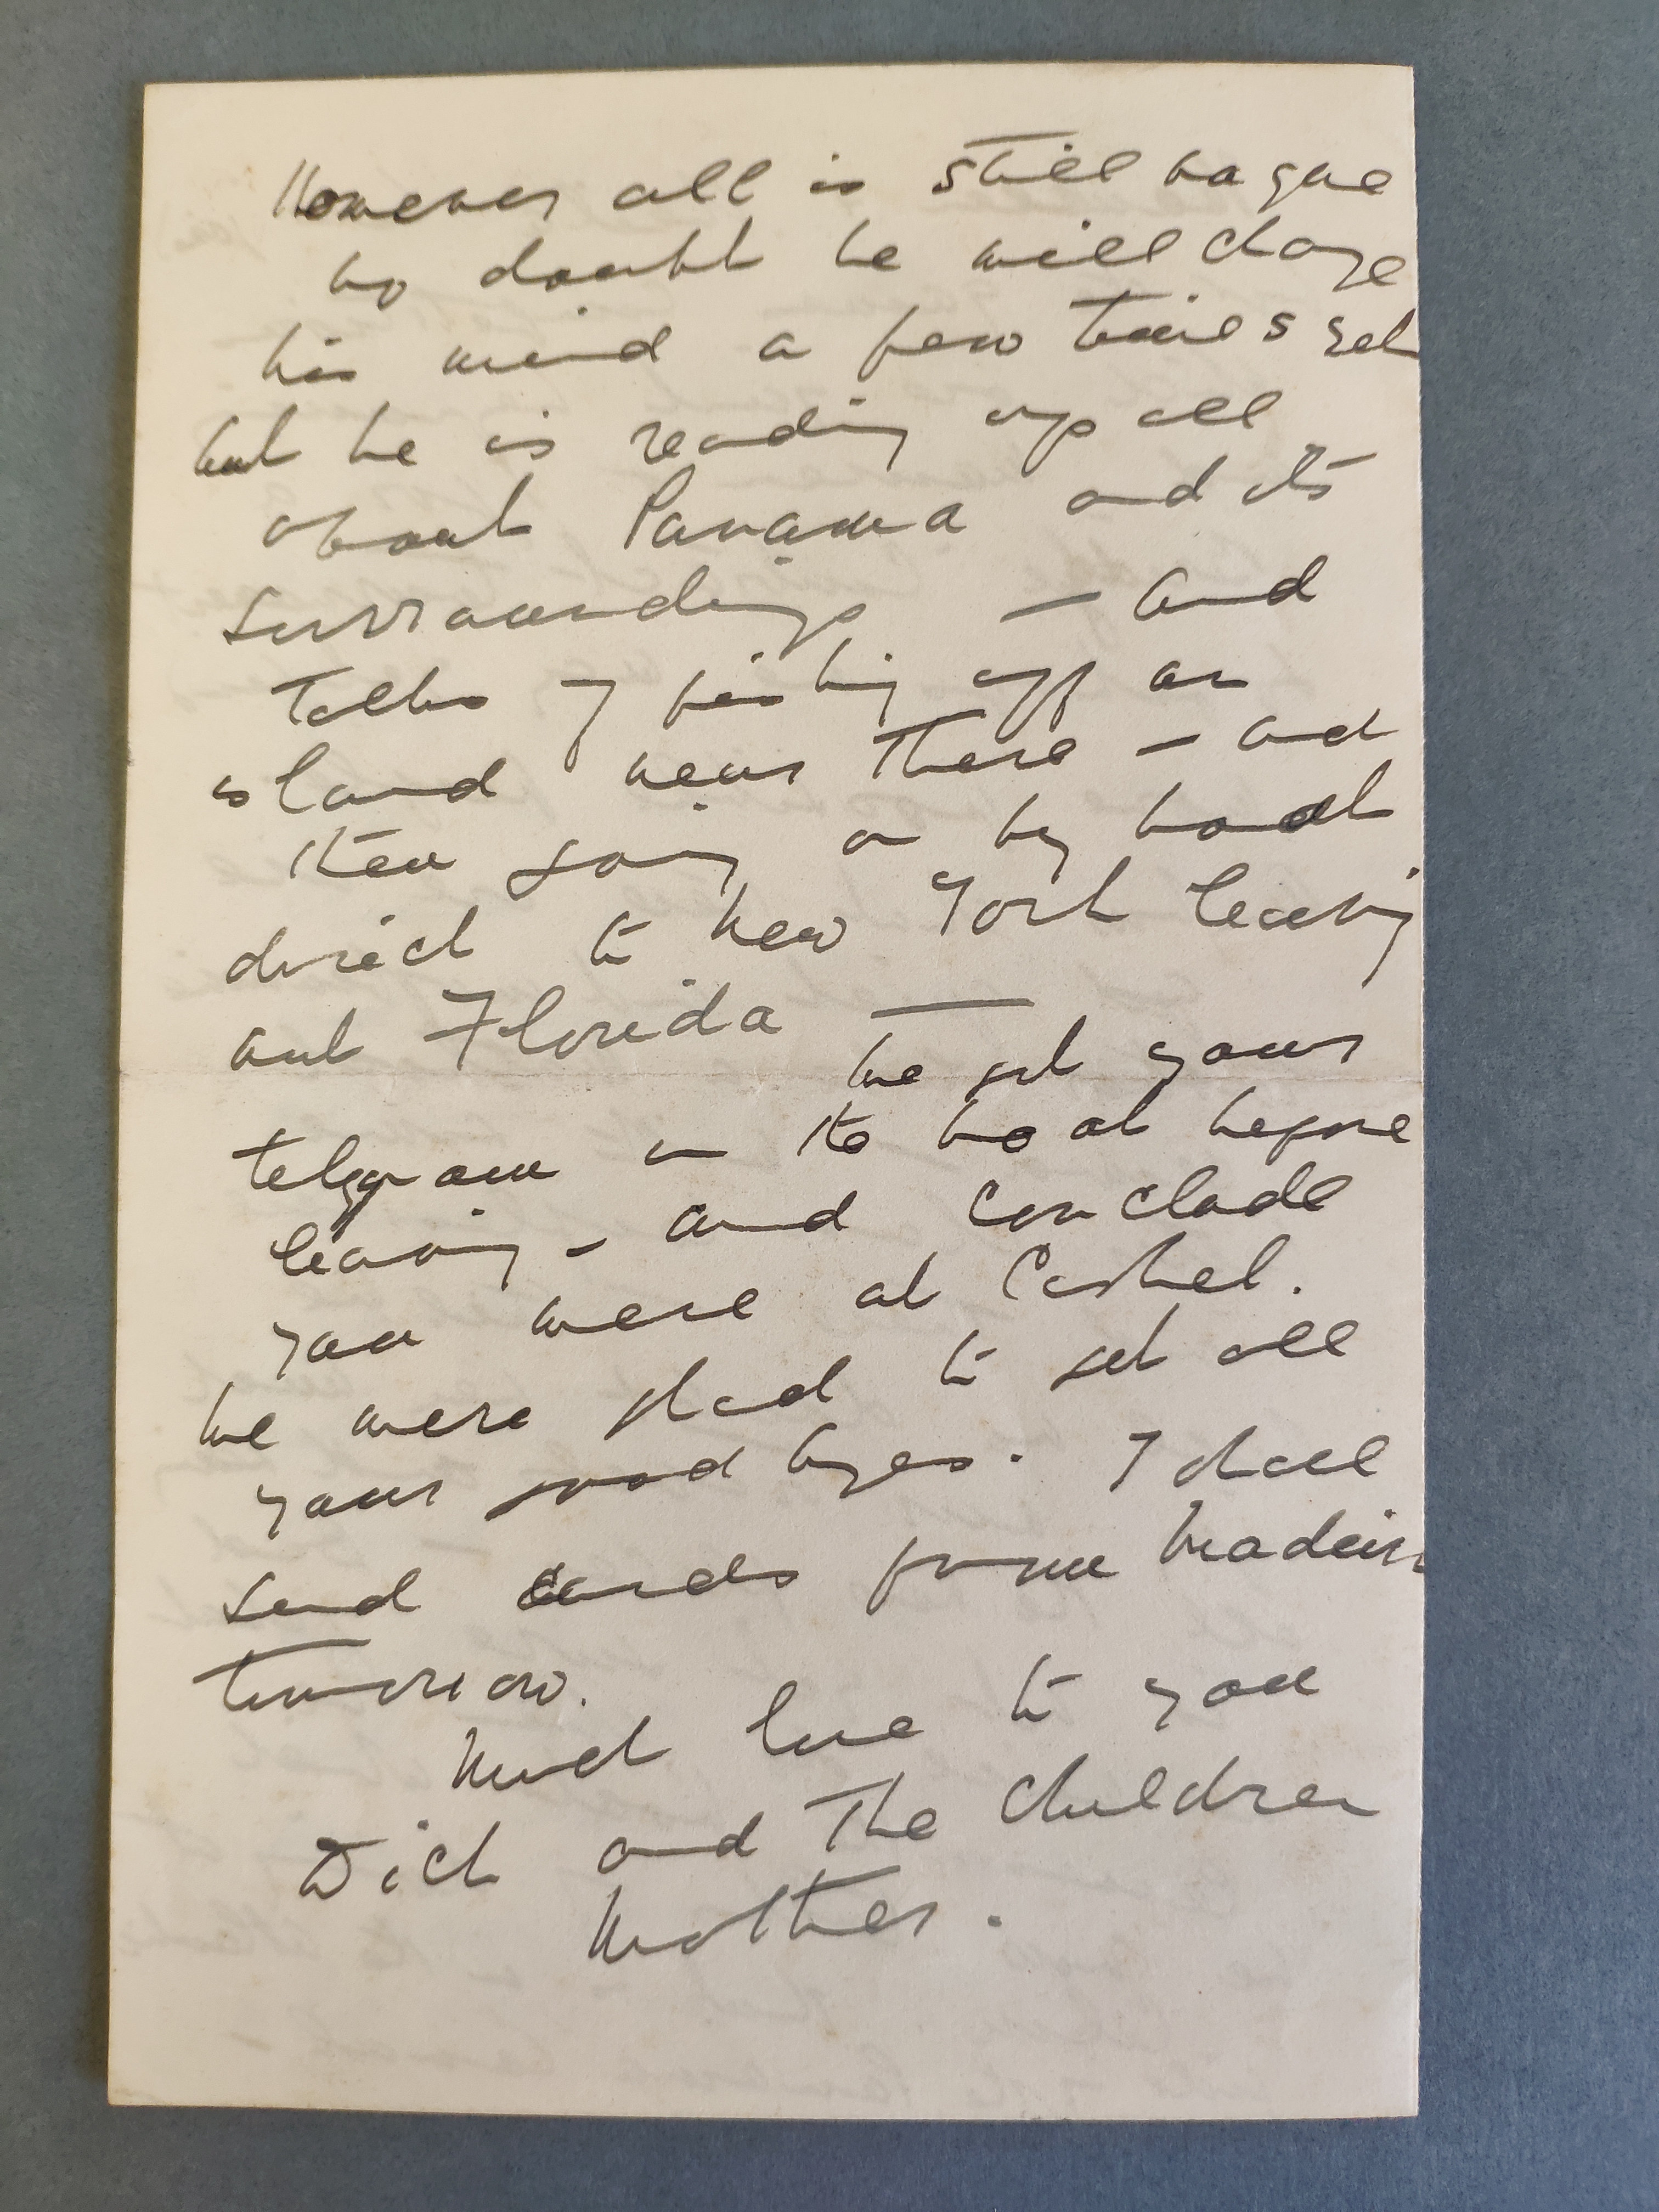 However all is still vague
no doubt he will change
his mind a few times yet
but he is reading up all
about Panama and its
surroundings — and
talks of fishing off an
island near there — and
then going on by boat
direct to New York leaving
out Florida —
We got your
telegram on the boat before
leaving – and conclude
you were at Cashel.
We were glad to get all
your good byes. I shall
send cards from Madeira
tomorrow.
Much love to you
Dick and the children
Mother.